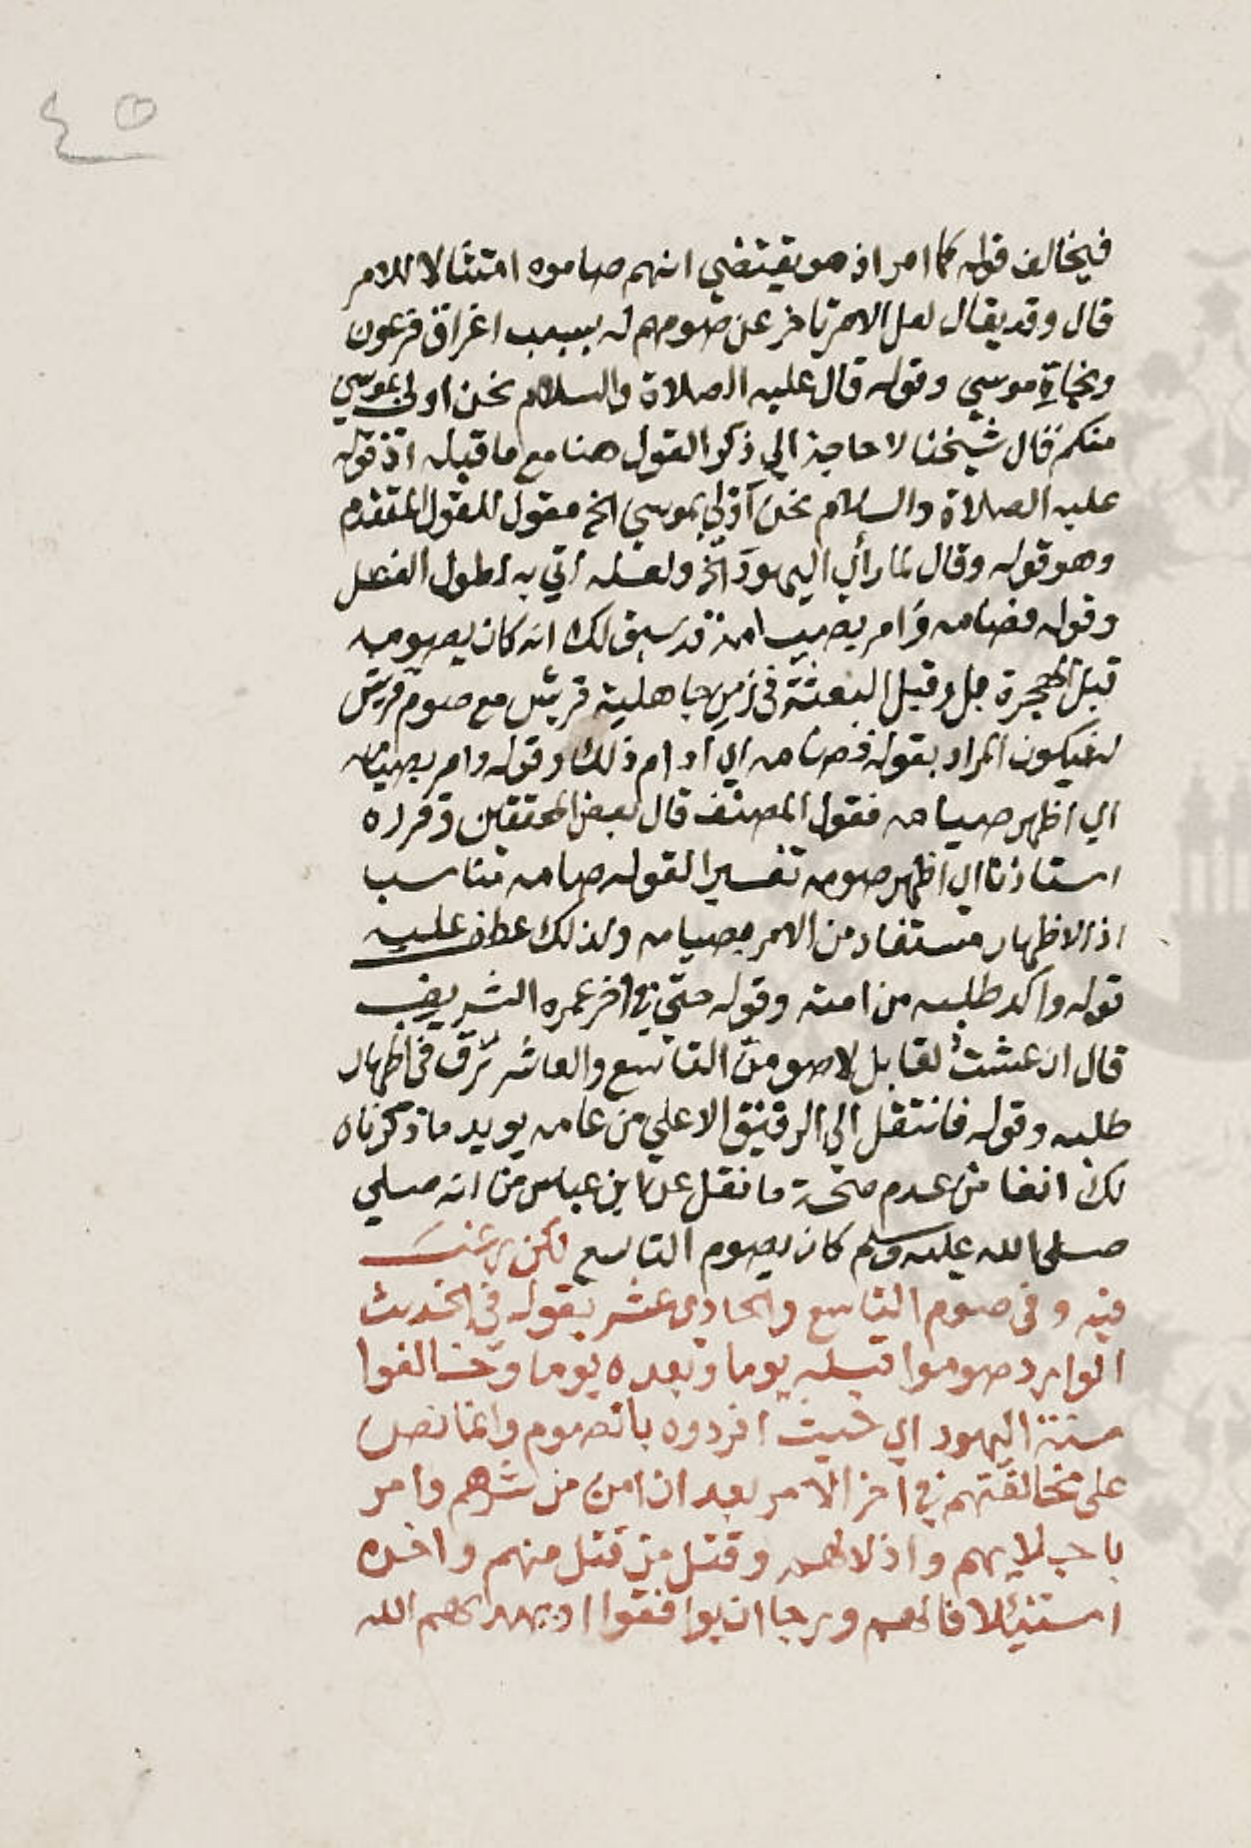 ٤٥
فيخالف قوله كما امر اذ هو يقتضي انهم صاموه امتثالا للامر
قال وقد يقال لعل الامر تاخر عن صومهم له بسبب اغراق فرعون
ونجاة موسي وقوله قال عليه الصلاة والسلام نحن اولي بموسي
منكم قال شيخنا لا حاجة الي ذكر القول هنا مع ما قبله اذ قوله
عليه الصلاة والسلام نحن اولي بموسي الخ مقول للقول المتقدم
وهو قوله وقال لما راي اليهود الخ ولعله اتي به لطول الفصل
وقوله فصامه وامر بصيامه قد سبق لك انه كان يصومه
قبل الهجرة بل وقبل البعثة في زمن جاهلية قريش مع صوم قريش
له فيكون المراد بقوله فصامه اي ادام ذلك وقوله وامر بصيامه
اي اظهر صيامه فقول المصنف قال بعض المحققين وقرره
استاذنا اي اظهر صومه تفسيرا لقوله صامه مناسب
اذ الاظهار مستفاد من الامر بصيامه ولذلك عطف عليه
قوله واكد طلبه من امته وقوله حتي في اخر عمره الشريف
قال ان عشت لقابل لاصومن التاسع والعاشر ترق في اظهار
طلبه وقوله فانتقل الي الرفيق الاعلي من عامه يويد ما ذكرناه
لك انفا من عدم صحة ما نقل عن ابن عباس من انه صلي
صلى الله عليه وسلم كان يصوم التاسع لكن رغب
فيه وفي صوم التاسع والحادي عشر بقوله في الحديث
الوارد صوموا قبله يوما وبعده يوما وخالفوا
سنة اليهود اي حيث افردوه بالصوم وانما نص
على مخالفتهم في اخر الامر بعد ان امن من شرهم وامر
باجلايهم واذلالهم وقتل من قتل منهم واخذه
استئلافا لهم ورجا ان يوافقوا او يهديهم الله